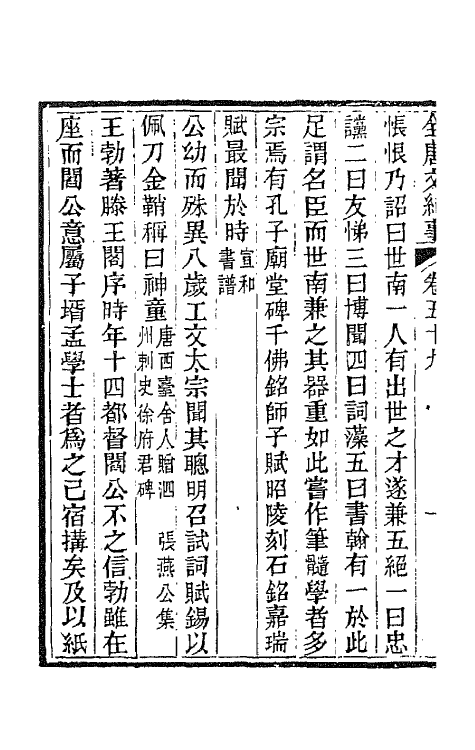 全唐文紀事 卷五十九 一
悵恨乃詔曰世南一人有出世之才遂兼五絕一曰忠
讜二曰友悌三曰博聞四曰詞藻五曰書翰有一於此
足謂名臣而世南兼之其器重如此嘗作筆髓學者多
宗焉有孔子廟堂碑千佛銘師子賦昭陵刻石銘嘉瑞
賦最聞於時宣和書譜
公幼而殊異八歲工文太宗聞其聰明召試詞賦錫以
佩刀金鞘稱曰神童唐西臺舍人贈泗州刺史徐府君碑 張燕公集
王勃著滕王閣序時年十四都督閻公不之信勃雖在
座而閻公意屬子壻孟學士者為之已宿搆矣及以紙